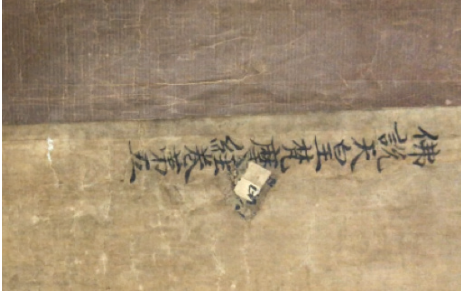 佛説天皇梵摩經卷第五